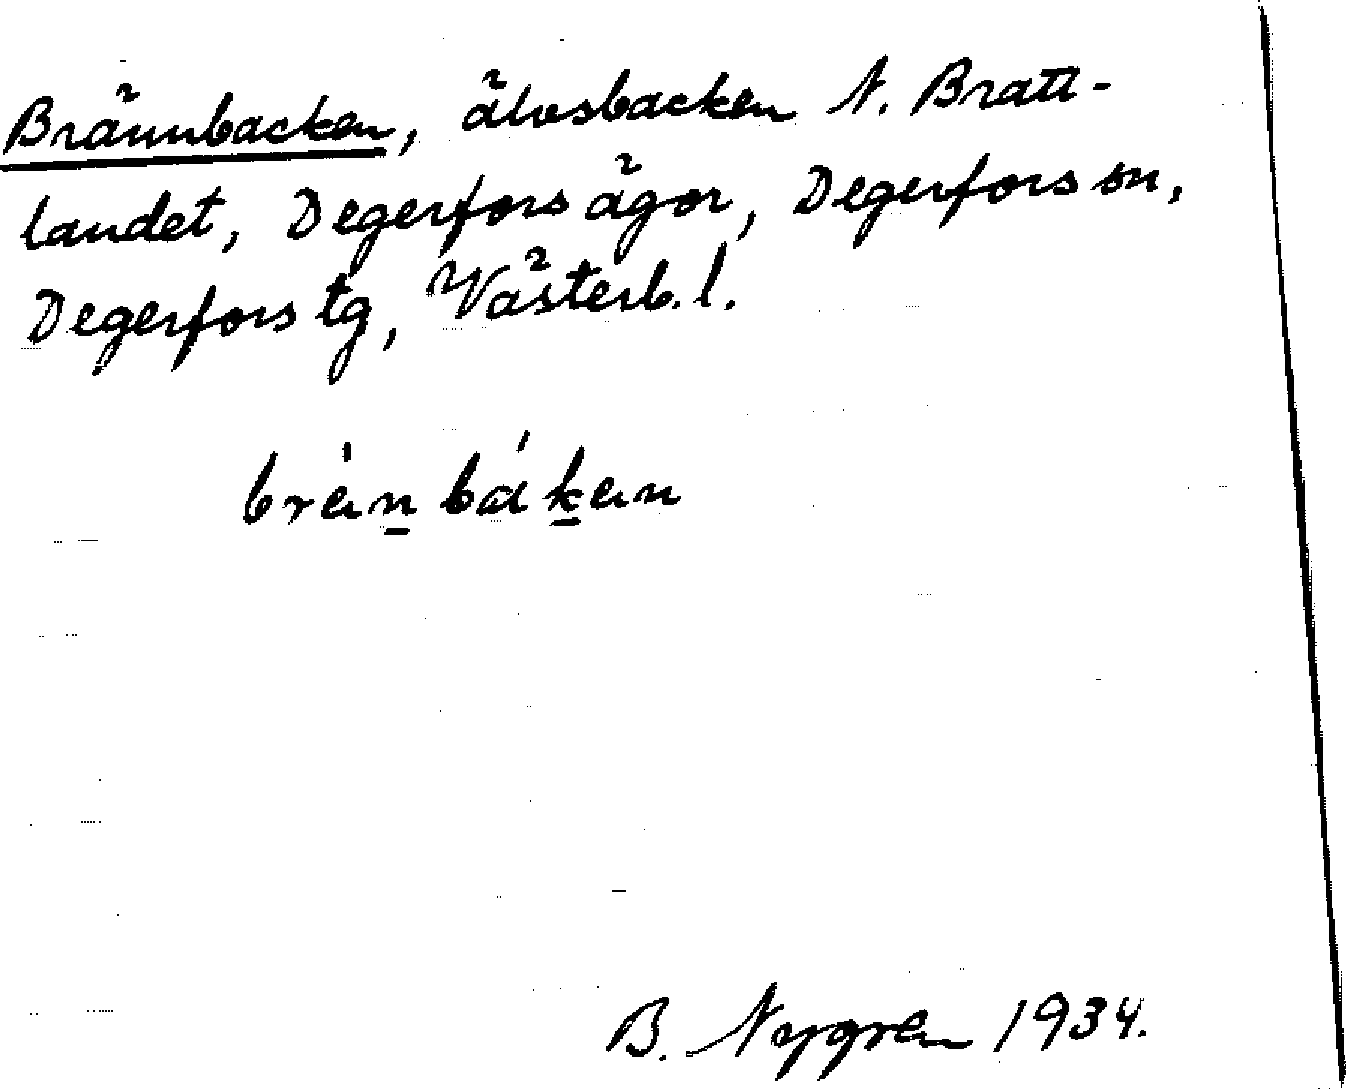 Brännbacken, älvsbacken N. Bratt-
landet, Degerfors ägor, Degerfors sn,
Degerfors tg, Västerb. l.
brän bákän
B. Nygren 1934.